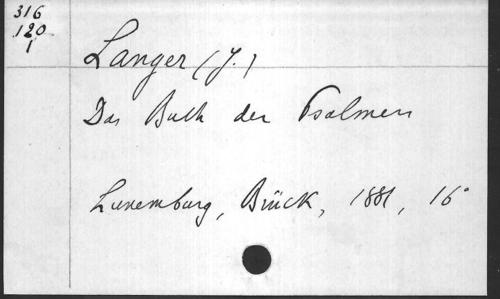 316
120
1
Langer (J.)
Das Buch der Psalmen
Luxemburg, Brück, 1881, 16°